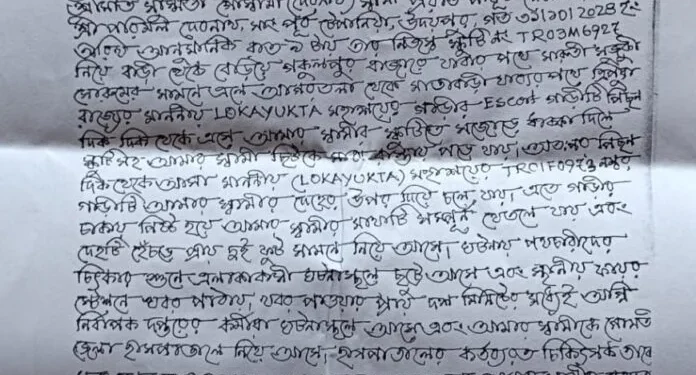 শ্রী পরিমল দেবনাথ, সাং পূর্ব গোকুলপুর, উদয়পুর, গত ৩১।০১।2023 ইং
আনুমানিক রাত ৯ টায় তার নিজস্ব স্কুটি নং TR03M6927
নিয়ে বাড়ী থেকে বেড়িয়ে গকুলপুর বাজারে যাবার পথে মারুতী সুজুকী
শোরুমের সামনে এলে আগরতলা থেকে মাতাবাড়ী যাবার পথে ত্রিপুরা
রাজ্যের মাননীয় LOKAYUKTA মহাশয়ের গাড়ীর Escort গাড়ীটি পিছন
দিক থেকে এসে আমার স্বামীর স্কুটিতে সজোরে ধাক্কা দিলে
স্কুটি সহ আমার স্বামী ছিটকে রাস্তায় পড়ে যায়, অতঃপর পিছন
দিক থেকে আসা মাননীয় (LOKAYUKTA) মহাশয়ের TR01F0923 নম্বর
গাড়ীটি আমার স্বামীর দেহের উপর দিয়ে চলে যায়, এতে গাড়ীর
চাকায় পিষ্ট হয়ে আমার স্বামীর মাথাটি সম্পূর্ন থেতলে যায় এবং
দেহটি হেঁচড়ে প্রায় দুই ফুট সামনে নিয়ে আসে, ঘটনায় পথচারীদের
চিৎকার শুনে এলাকাবাসী ঘটনাস্থলে ছুটে আসে এবং স্থানীয় ফায়ার
স্টেশনে খবর পাঠায়, খবর পাওয়ার প্রায় দশ মিনিটের মধ্যেই অগ্নি
নির্বাপক দপ্তরের কর্মীরা ঘটনাস্থলে আসে এবং আমার স্বামীকে গোমতী
জেলা হাসপাতালে নিয়ে আসে, হাসপাতালের কর্তব্যরত চিকিৎসক তাকে